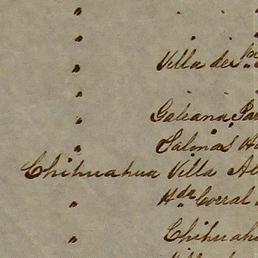 "
" . .
" Villa de
"
" Galeana,
" Salinas
Chihuahua Villa
" Hda Corral
" Chihuahu